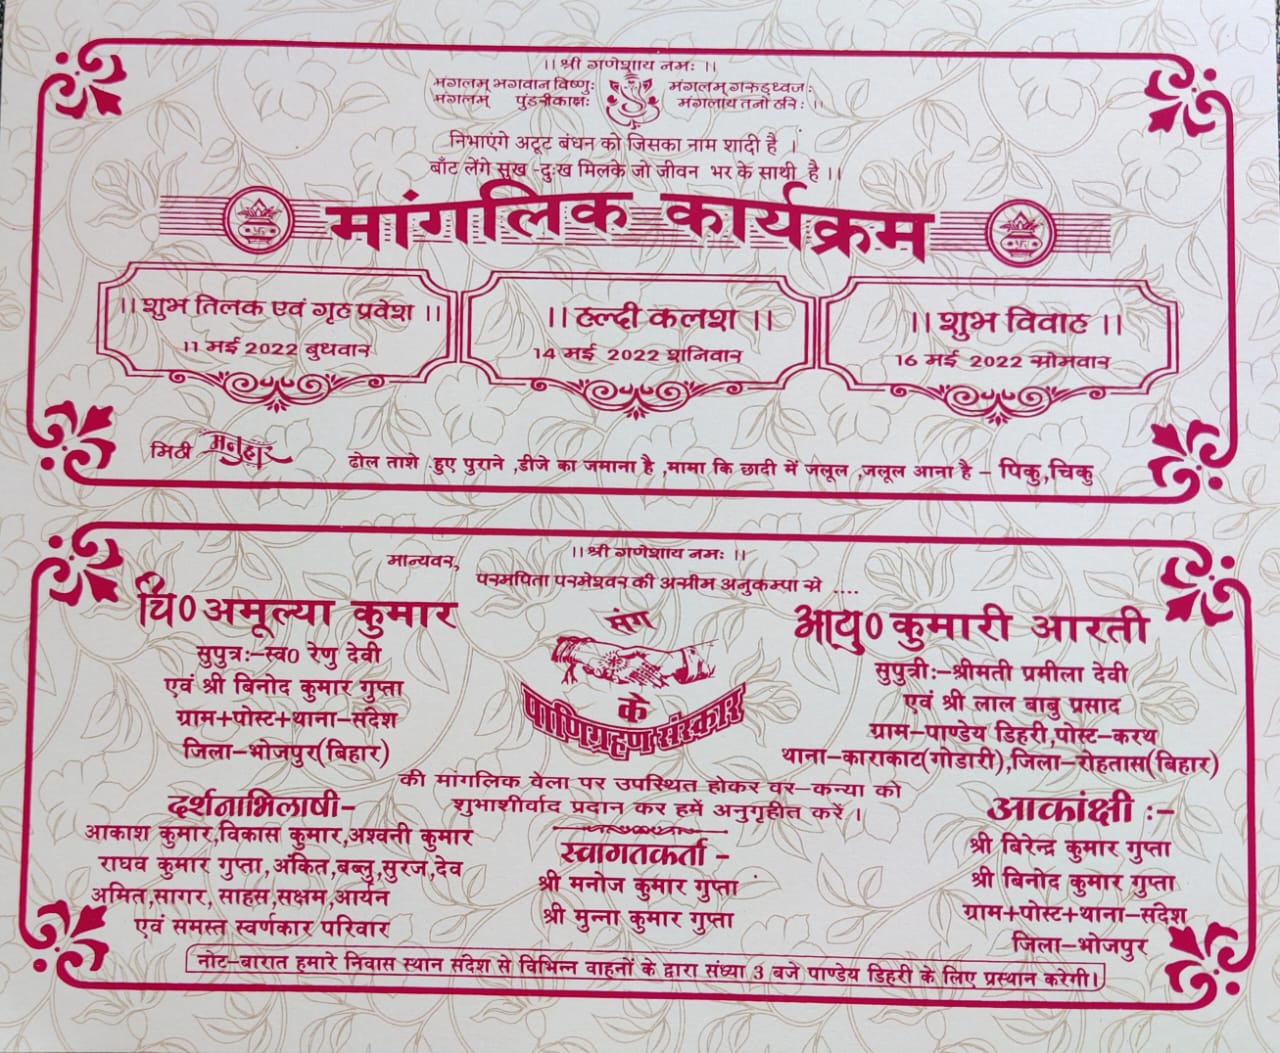 ।। श्री गणेशाय नमः ।।
मंगलम् भगवान विष्णुः मंगलम् गरुड़ध्वजः
मंगलम् पुंडरीकाक्षः मंगलाय तनो हरिः ।।
निभाएंगे अटूट बंधन को जिसका नाम शादी है ।
बाँट लेंगे सुख -दुःख मिलके जो जीवन भर के साथी है ।।
मांगलिक कार्यक्रम
।। शुभ तिलक एवं गृह प्रवेश ।।
11 मई 2022 बुधवार
।। हल्दी कलश ।।
14 मई 2022 शनिवार
।। शुभ विवाह ।।
16 मई 2022 सोमवार
मिठी मनुहार
ढोल ताशे हुए पुराने ,डीजे का जमाना है ,मामा कि छादी में जलूल ,जलूल आना है – पिकु,चिकु
।। श्री गणेशाय नमः ।।
मान्यवर,
परमपिता परमेश्वर की असीम अनुकम्पा से ....
चि0 अमूल्या कुमार
सुपुत्रः–स्व0 रेणु देवी
एवं श्री बिनोद कुमार गुप्ता
ग्राम+पोस्ट+थाना–संदेश
जिला–भोजपुर(बिहार)
संग
आयु0 कुमारी आरती
सुपुत्रीः–श्रीमती प्रमीला देवी
एवं श्री लाल बाबु प्रसाद
ग्राम–पाण्डेय डिहरी,पोस्ट–करथ
थाना–काराकाट(गोडारी),जिला–रोहतास(बिहार)
के
पाणिग्रहण संस्कार
की मांगलिक वेला पर उपस्थित होकर वर–कन्या को
शुभाशीर्वाद प्रदान कर हमें अनुगृहीत करें ।
दर्शनाभिलाषी–
आकाश कुमार,विकास कुमार,अश्वनी कुमार
राघव कुमार गुप्ता,अंकित,बब्लु,सुरज,देव
अमित,सागर, साहस,सक्षम,आर्यन
एवं समस्त स्वर्णकार परिवार
स्वागतकर्ता –
श्री मनोज कुमार गुप्ता
श्री मुन्ना कुमार गुप्ता
आकांक्षी :–
श्री बिरेन्द्र कुमार गुप्ता
श्री बिनोद कुमार गुप्ता
ग्राम+पोस्ट+थाना–संदेश
जिला–भोजपुर
नोट–बारात हमारे निवास स्थान संदेश से विभिन्न वाहनों के द्वारा संध्या 3 बजे पाण्डेय डिहरी के लिए प्रस्थान करेगी।